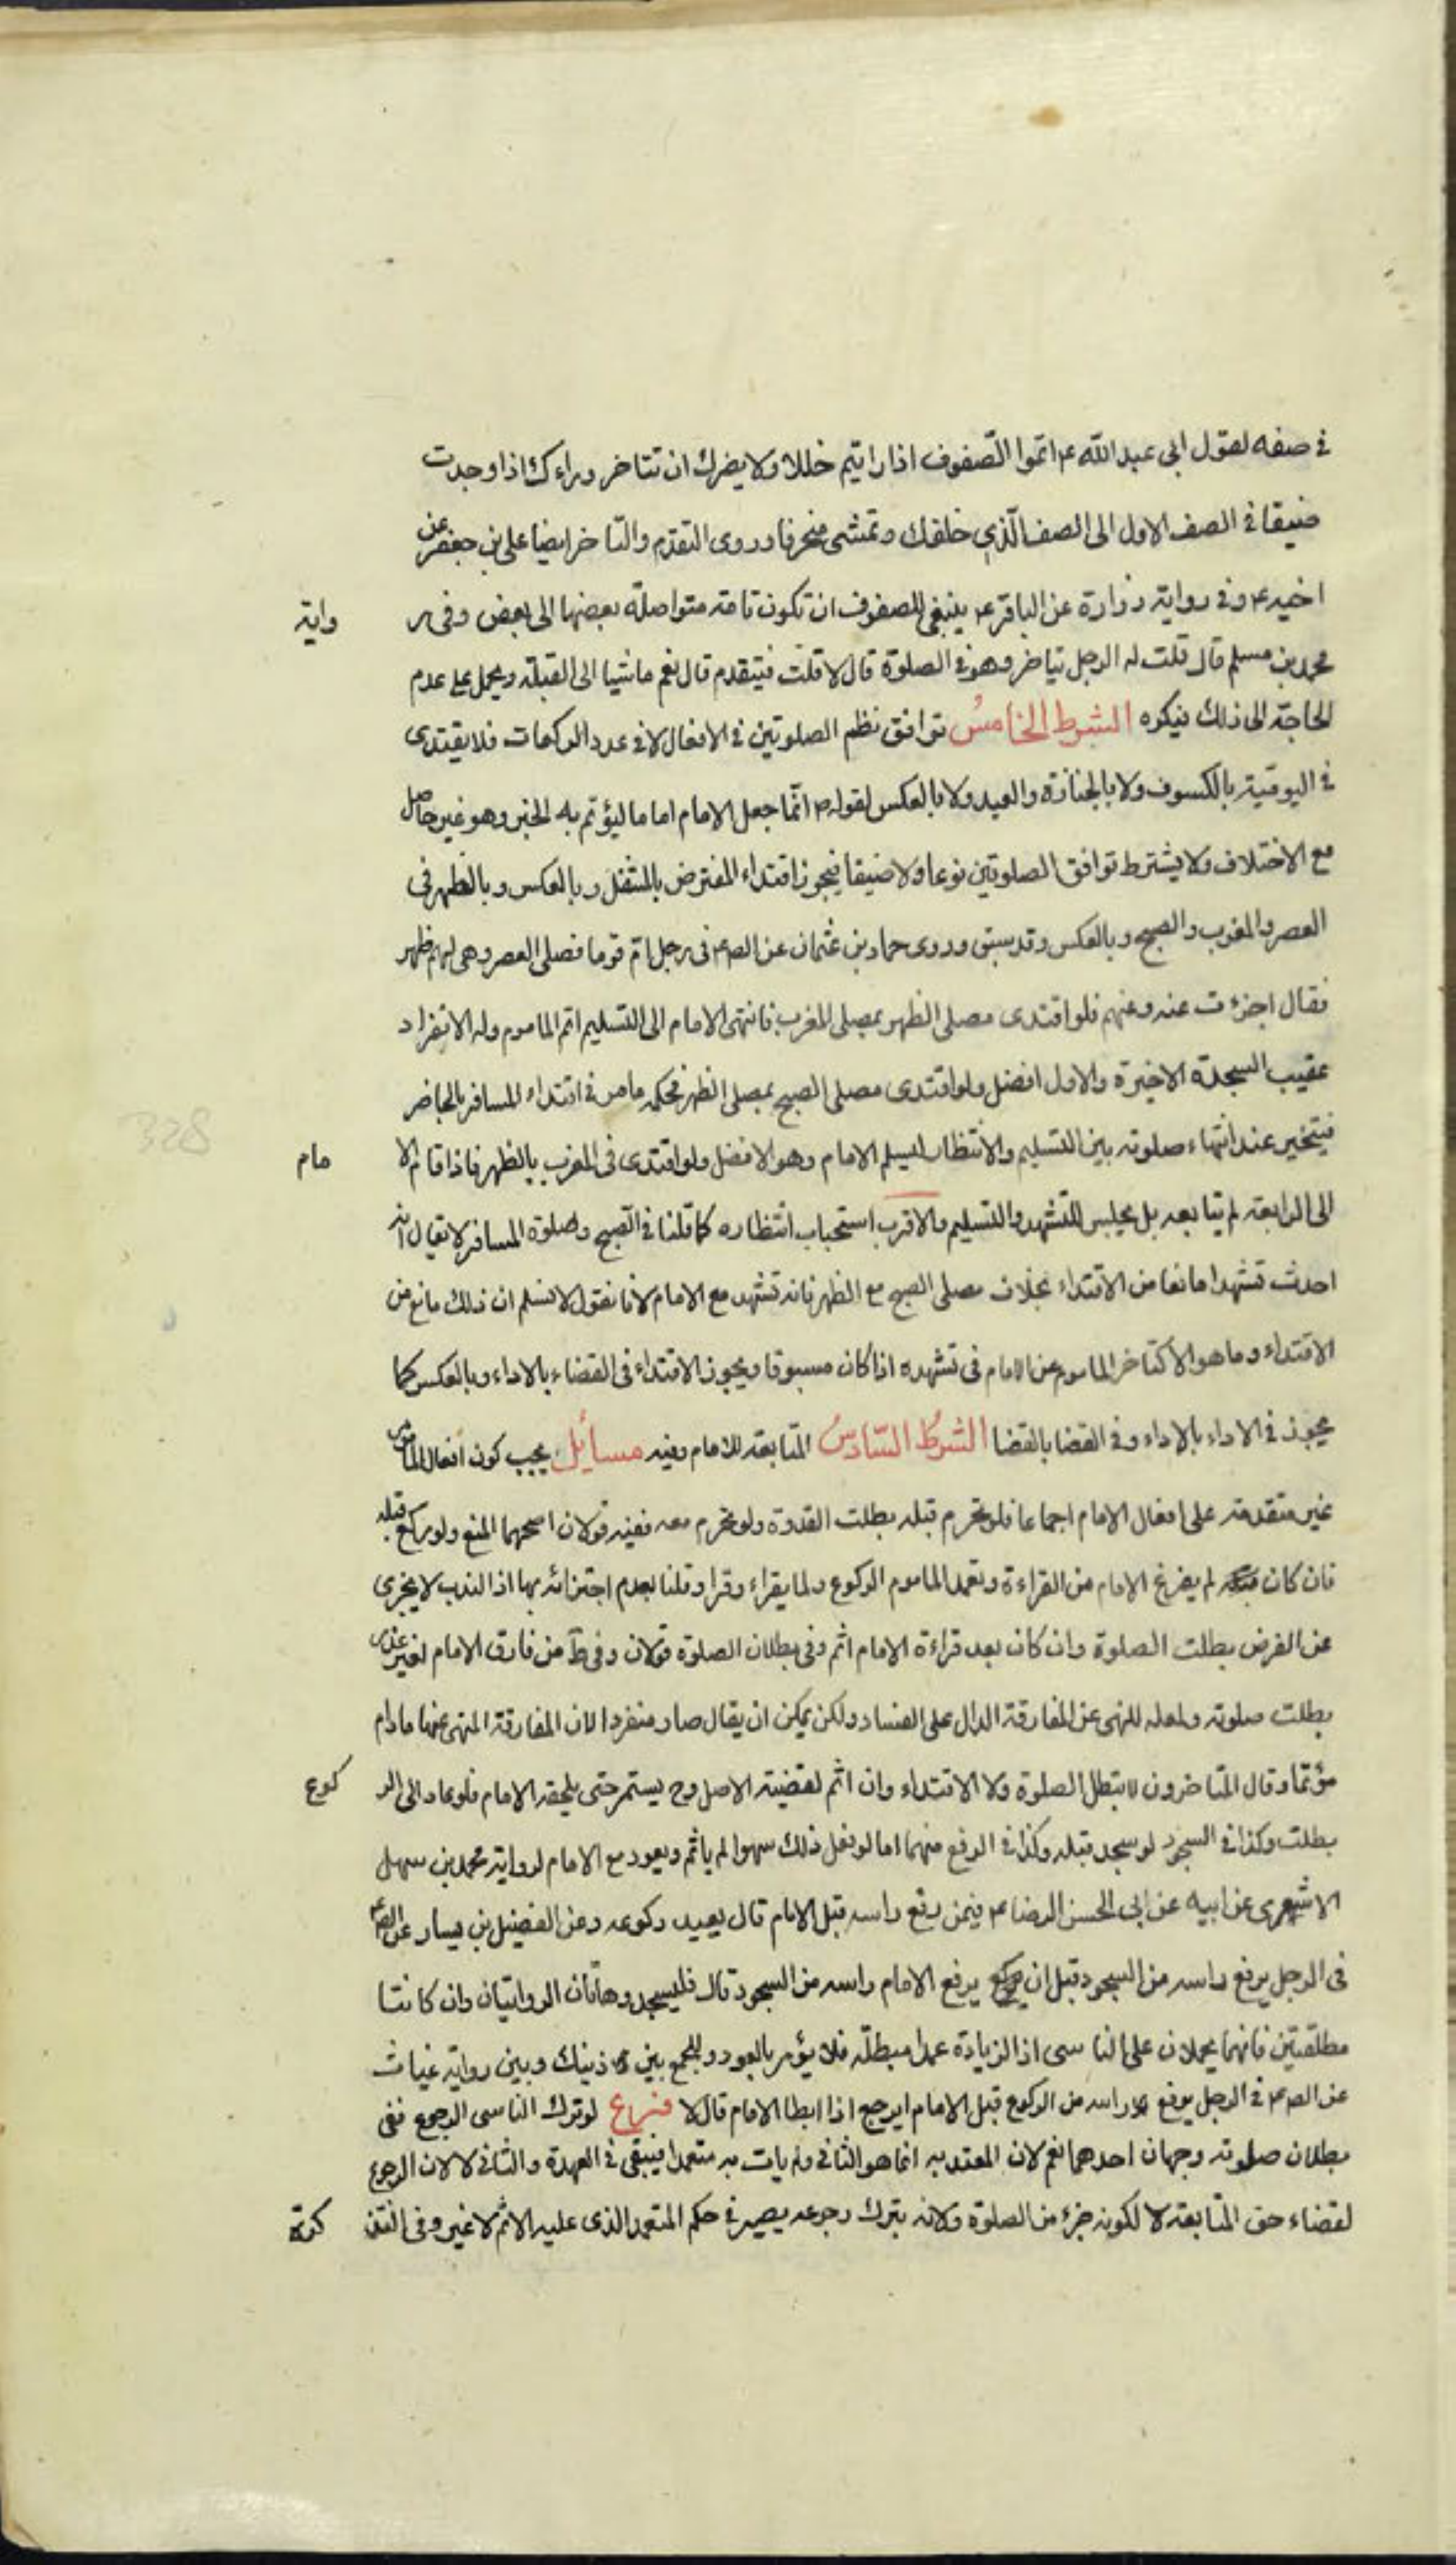 في صفه لقول ابي عبد الله ع اتموا الصفوف اذا رايتم خللا ولا يضرك ان تتاخر وراءك اذا وجدت
ضيقا في الصف الاول الى الصف الّذي خلفك وتمشى منحرفا وروى التقدّم والتاخر ايضا على بن جعفر عن
اخيه ع وفي رواية زرارة عن الباقر ع ينبغي للصفوف ان تكون تامة متواصلة بعضها الى بعض وفى ر واية
محمد بن مسلم قال قلت له الرجل يتاخر وهو في الصلوة قال لا قلت فيتقدم قال نعم ماشيا الى القبلة ويحمل على عدم
الحاجة الى ذلك فيكره الشرط الخامس توافق نظم الصلوتين في الافعال لا في عدد الركعات فلا يقتدى
في اليوميّة بالكسوف ولا بالجنازة والعيد ولا بالعكس لقوله ص انّما جعل الامام اماما ليؤتم به الخبر وهو غير حاصل
مع الاختلاف ولا يشترط توافق الصلوتين نوعا ولا صنفا فيجوز اقتداء المفترض بالمتنفل وبالعكس وبالظهر فى
العصر والمغرب والصبح وبالعكس وقد سبق وروى حماد بن عثمان عن الص ع فى رجل امّ قوما فصلى العصر وهى لهم ظهر
فقال اجزءت عنه وعنهم فلو اقتدى مصلى الظهر بمصلى المغرب فانتهى الامام الى التسليم اتم الماموم وله الانفراد
عقيب السجدة الاخيرة والاول افضل ولو اقتدى مصلى الصبح بمصلى الظهر فحكمه ما مر في اقتداء المسافر بالحاضر
فيتخير عند انتهاء صلوته بين التسليم والانتظار ليسلم الامام وهو الافضل ولو اقتدى فى المغرب بالظهر فاذا قام الا مام
الى الرابعة لم يتابعه بل يجلس للتشهد والتسليم والاقرب استحباب انتظاره كما قلنا في الصبح وصلوة المسافر لا يقال انه
احدث تشهدا مانعا من الاقتداء بخلاف مصلى الصبح مع الظهر فانه تشهد مع الامام لانا نقول لا نسلم ان ذلك مانع من
الاقتداء وما هو الا كتاخر الماموم عن الامام فى تشهده اذا كان مسبوقا ويجوز الاقتداء فى القضاء بالاداء وبالعكس كما
يجوز في الاداء بالاداء وفي القضا بالقضا الشرط السّادس المتابعة للامام وفيه مسائل يجب كون افعال الماموم
غير متقدمة على افعال الامام اجماعا فلو تحرم قبله بطلت القدوة ولو تحرم معه ففيه قولان اصحهما المنع ولو ركع قبله
فان كان لم يفرغ الامام من القراءة وتعمد الماموم الركوع ولما يقراء وقرا وقلنا بعدم اجتزائه بها اذ الندب لا يجزى
عن الفرض بطلت الصلوة وان كان بعد قراءة الامام اثم وفى بطلان الصلوة قولان وفى ط من فارق الامام لغير عذر
بطلت صلوته ولعله للنهى عن المفارقة الدال على الفساد ولكن يمكن ان يقال صار منفردا لان المفارقة المنهى عنها ما دام
مؤتما وقال المتاخرون لا تبطل الصلوة ولا الاقتداء وان اثم لقضية الاصل وح يستمر حتى يلحقه الامام فلو عاد الى الر كوع
بطلت وكذا في السجود لو سجد قبله وكذا في الرفع منهما اما لو فعل ذلك سهوا لم ياثم ويعود مع الامام لرواية محمد بن سهل
الاشعرى عن ابيه عن ابى الحسن الرضا ع فيمن رفع راسه قبل الامام قال يعيد ركوعه وعن الفضيل بن يسار عن الص ع
فى الرجل يرفع راسه من السجود قبل ان يرفع الامام راسه من السجود قال فليسجد وهاتان الروايتان وان كانتا
مطلقتين فانهما يحملان على الناسى اذ الزيادة عمدا مبطلة فلا يؤمر بالعود وللجمع بين ذينك وبين رواية غياث
عن الص ع في الرجل يرفع راسه من الركوع قبل الامام ايرجع اذا ابطا الامام قال لا فرع لو ترك الناسى الرجوع ففى
بطلان صلوته وجهان احدهما نعم لان المعتد به انما هو الثانى ولم يات به متعمدا فيبقى في العهدة والثانى لا لان الرجوع
لقضاء حق المتابعة لا لكونه جزء من الصلوة ولانه بترك رجوعه يصير في حكم المتعمد الذى عليه الاثم لا غير وفى التذ كرة